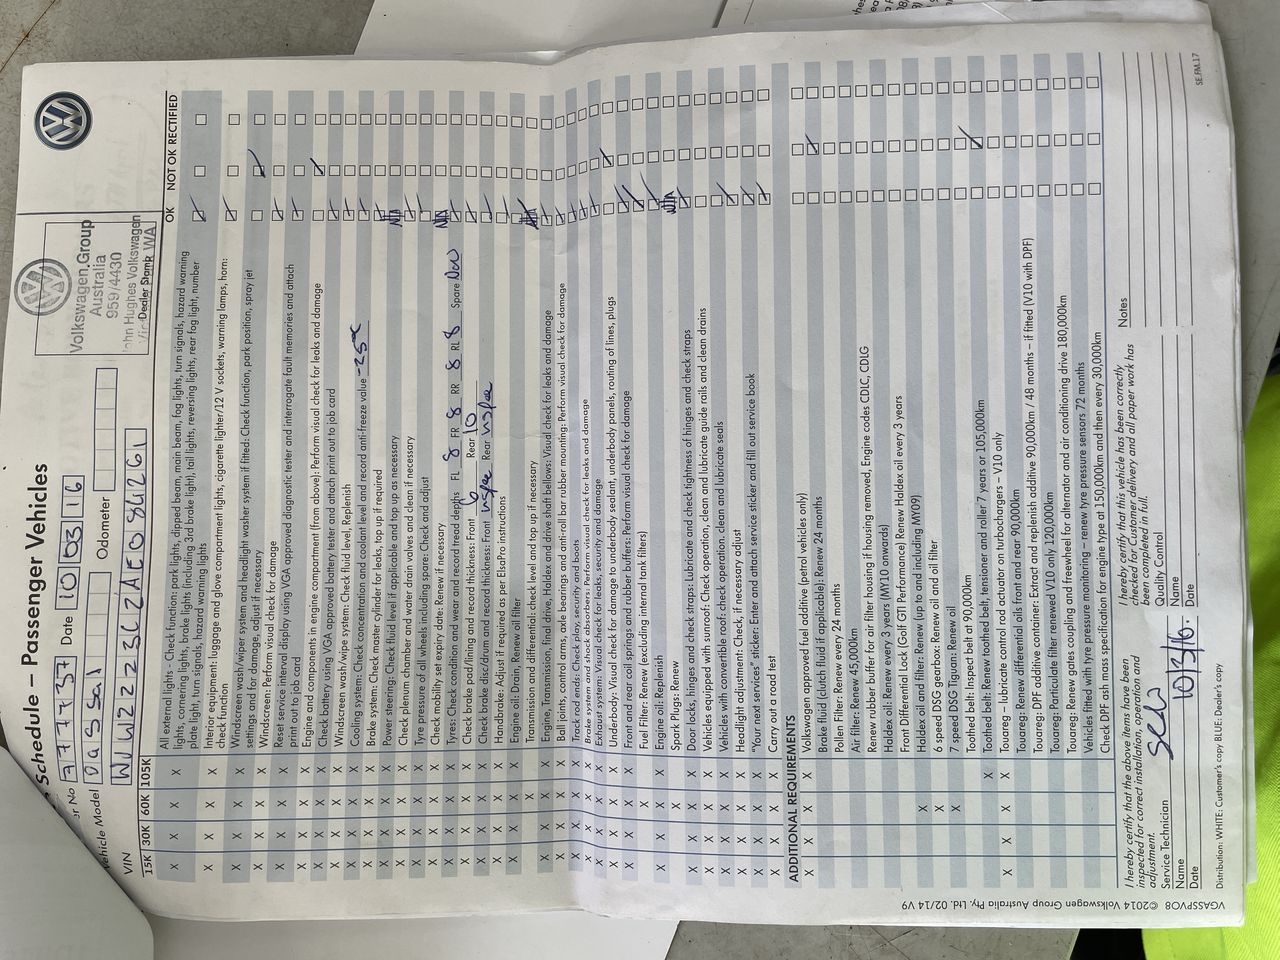 Schedule – Passenger Vehicles
Volkswagen Group
Australia
959/4430
John Hughes Volkswagen
Dealer Stamp WA
er No 7777737 Date 10 03 16
Vehicle Model Passat Odometer
VIN
15K 30K 60K 105K
OK NOT OK RECTIFIED
X X X X All external lights - Check function: park lights, dipped beam, main beam, fog lights, turn signals, hazard warning
lights, cornering lights, brake lights (including 3rd brake light), tail lights, reversing lights, rear fog light, number
plate light, turn signals, hazard warning lights
X X X X Interior equipment: luggage and glove compartment lights, cigarette lighter/12 V sockets, warning lamps, horn:
check function
X X X X Windscreen wash/wiper system and headlight washer system if fitted: Check function, park position, spray jet
settings and for damage, adjust if necessary
X X X X Windscreen: Perform visual check for damage
X X X X Reset service interval display using VGA approved diagnostic tester and interrogate fault memories and attach
print out to job card
X X X X Engine and components in engine compartment (from above): Perform visual check for leaks and damage
X X X X Check battery using VGA approved battery tester and attach print out to job card
X X X X Windscreen wash/wipe system: Check fluid level, Replenish
X X X X Cooling system: Check concentration and coolant level and record anti-freeze value -25°C
X X X X Brake system: Check master cylinder for leaks, top up if required
X X X X Power steering: Check fluid level if applicable and top up as necessary N/A
X X X X Check plenum chamber and water drain valves and clean if necessary
X X X X Tyre pressure of all wheels including spare: Check and adjust
X X X X Check mobility set expiry date: Renew if necessary N/A
X X X X Tyres: Check condition and wear and record tread depths FL 8 FR 8 RR 8 RL 8 Spare New
X X X X Check brake pad/lining and record thickness: Front 6 Rear 10
X X X X Check brake disc/drum and record thickness: Front inspec Rear inspec
X X X X Handbrake: Adjust if required as per ElsaPro instructions
X X X X Engine oil: Drain, Renew oil filter
X Transmission and differential: check level and top up if necessary N/A
X X X X Engine, Transmission, final drive, Haldex and drive shaft bellows: Visual check for leaks and damage
X X X X Ball joints, control arms, axle bearings and anti-roll bar rubber mounting: Perform visual check for damage
X X X X Track rod ends: Check play, security and boots
X X X X Brake system and shock absorbers: Perform visual check for leaks and damage
X X X X Exhaust system: Visual check for leaks, security and damage
X X X X Underbody: Visual check for damage to underbody sealant, underbody panels, routing of lines, plugs
X X X X Front and rear coil springs and rubber buffers: Perform visual check for damage
X Fuel Filter: Renew (excluding internal tank filters)
X X X X Engine oil: Replenish
X Spark Plugs: Renew N/A
X X X X Door locks, hinges and check straps: Lubricate and check tightness of hinges and check straps
X X X X Vehicles equipped with sunroof: Check operation, clean and lubricate guide rails and clean drains
X X X X Vehicles with convertible roof: check operation, clean and lubricate seals
X X X X Headlight adjustment: Check, if necessary adjust
X X X X "Your next services" sticker: Enter and attach service sticker and fill out service book
X X X X Carry out a road test
ADDITIONAL REQUIREMENTS
X X X X Volkswagen approved fuel additive (petrol vehicles only)
Brake fluid (clutch fluid if applicable): Renew 24 months
Pollen Filter: Renew every 24 months
Air filter: Renew 45,000km
Renew rubber buffer for air filter housing if housing removed, Engine codes CDLC, CDLG
Haldex oil: Renew every 3 years (MY10 onwards)
Front Differential Lock (Golf GTI Performance) Renew Haldex oil every 3 years
X Haldex oil and filter: Renew (up to and including MY09)
X 6 speed DSG gearbox: Renew oil and oil filter
X 7 speed DSG Tiguan: Renew oil
Toothed belt: Inspect belt at 90,000km
X Toothed belt: Renew toothed belt, tensioner and roller 7 years or 105,000km
X X X X Touareg – lubricate control rod actuator on turbochargers - V10 only
Touareg: Renew differential oils front and rear 90,000km
Touareg: DPF additive container: Extract and replenish additive 90,000km / 48 months – if fitted (V10 with DPF)
Touareg: Particulate filter renewed V10 only 120,000km
Touareg: Renew gates coupling and freewheel for alternator and air conditioning drive 180,000km
Vehicles fitted with tyre pressure monitoring - renew tyre pressure sensors 72 months
Check DPF ash mass specification for engine type at 150,000km and then every 30,000km
I hereby certify that the above items have been
inspected for correct installation, operation and
adjustment.
Service Technician
Name
Date 10/3/16.
I hereby certify that this vehicle has been correctly
checked for Customer delivery and all paper work has
been completed in full.
Quality Control
Name
Date
Notes
Distribution: WHITE: Customer's copy BLUE: Dealer's copy
SE.FM.17
VGASSPVO8 ©2014 Volkswagen Group Australia Pty. Ltd. 02/14 V9